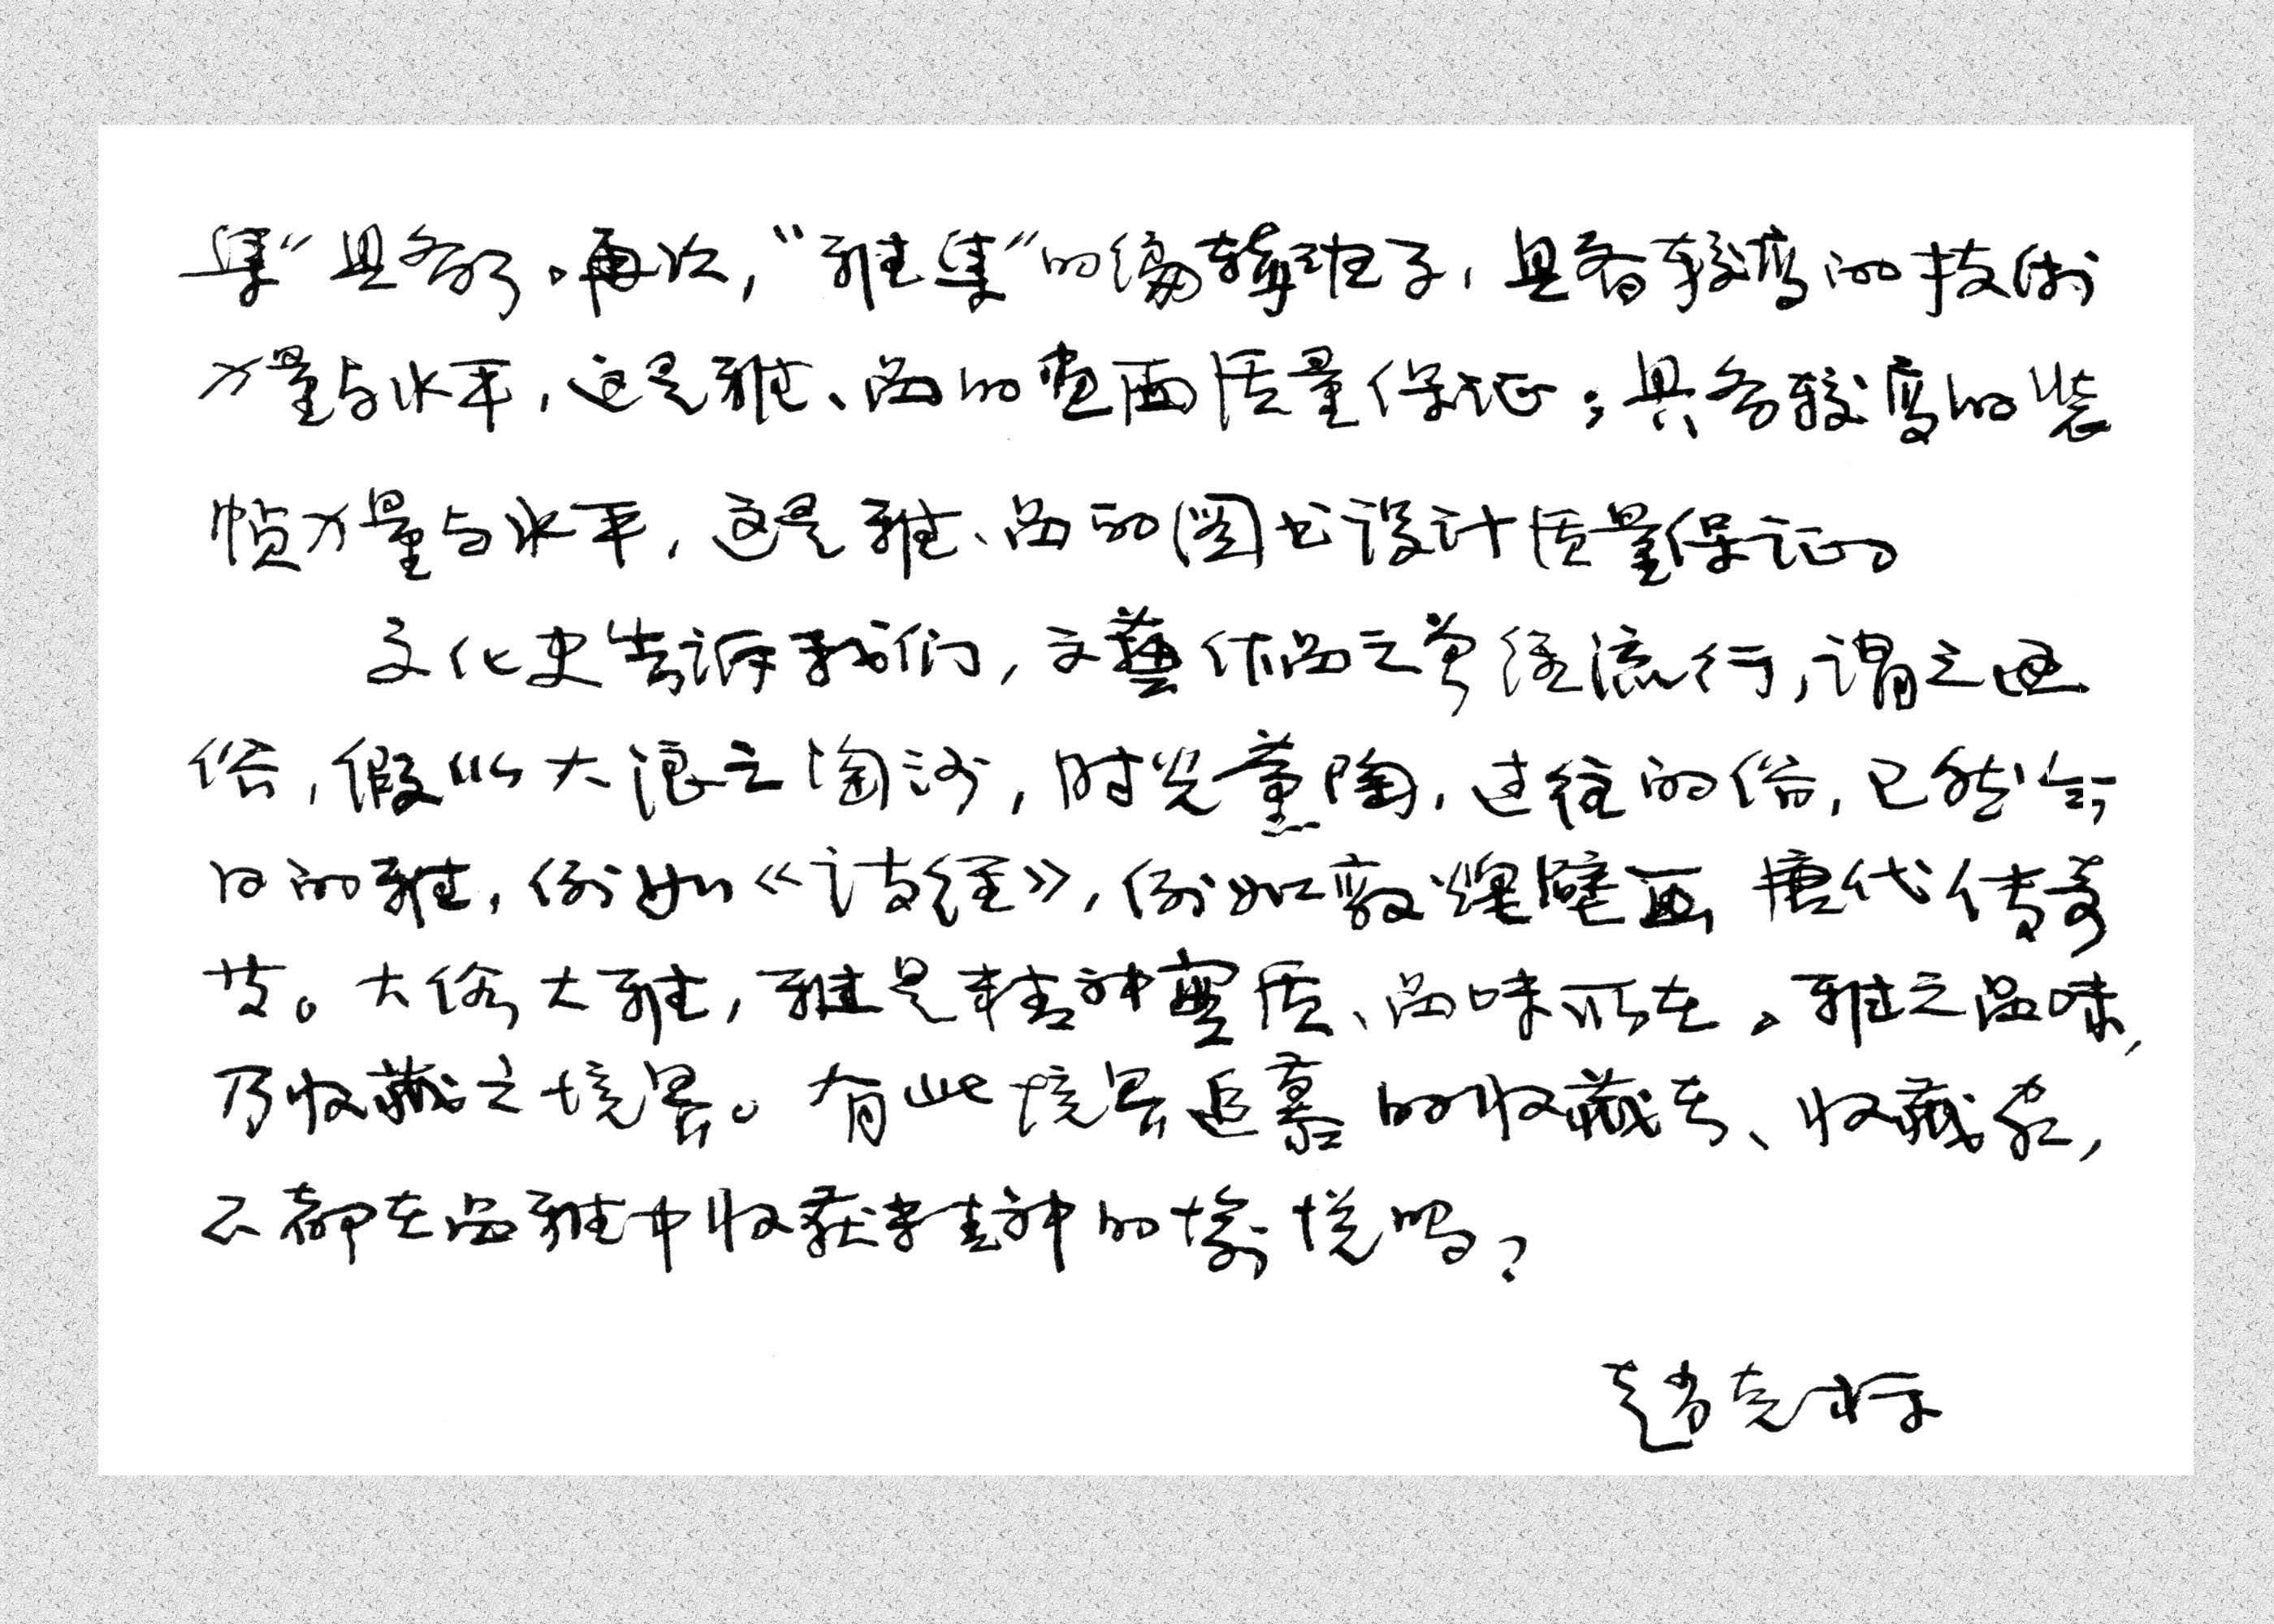 集”具备了。再次，“雅集”的编辑班子，具备较高的技术
力量与水平，这是雅、品的画面质量保证；具备较高的装
帧力量与水平，这是雅、品的图书设计质量保证。
文化史告诉我们，文藝作品之曾经流行，谓之通
俗，假以大浪之淘沙，时光薰陶，过往的俗，已然今
日的雅，例如《诗经》，例如敦煌壁画 唐代传奇
等。大俗大雅，雅是精神实质、品味所在。雅之品味，
乃收藏之境界。有此境界追慕的收藏者、收藏家，
不都在品雅中收获精神的愉悦吗？
趙克标